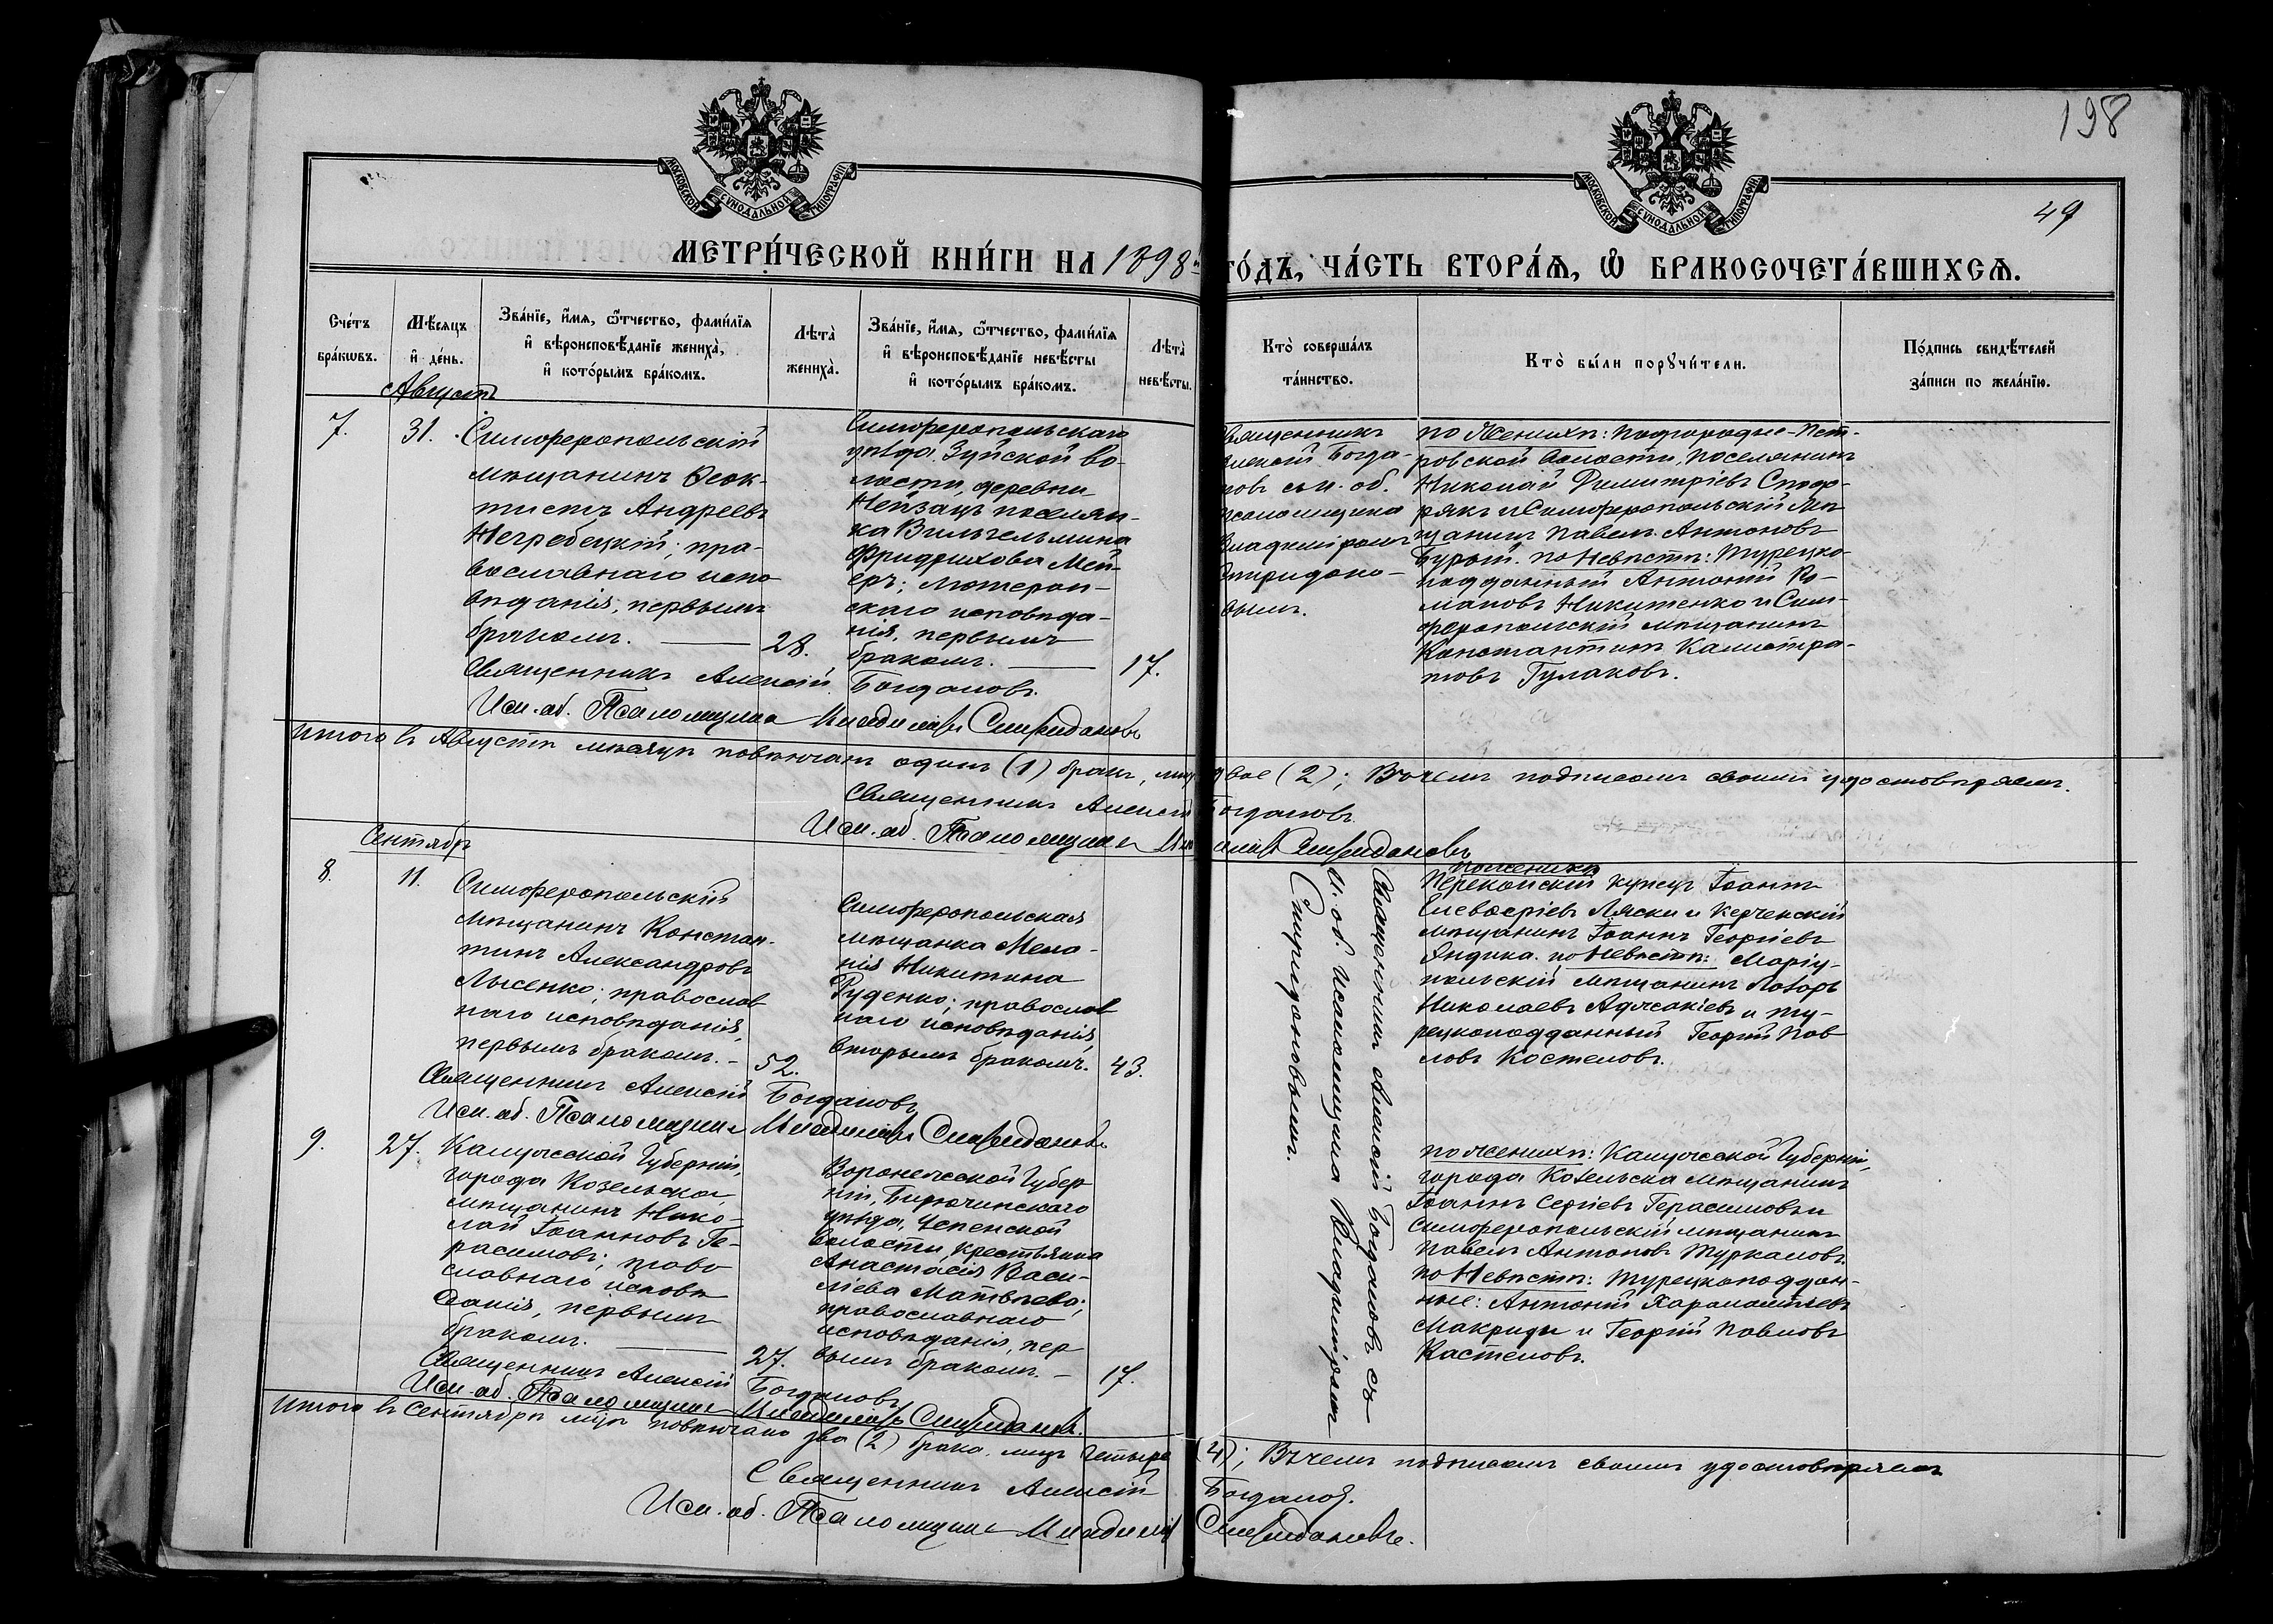 198
49
МОСКОВСКОЙ СѴНОДАЛЬНОЙ ТИПОГРАФІИ
МОСКОВСКОЙ СѴНОДАЛЬНОЙ ТИПОГРАФІИ
МЕТРИ́ЧЕСКОЙ КНИ́ГИ НА 1898й
ГО́ДЪ, ЧА́СТЬ ВТОРА́Ѧ, Ѡ БРАКОСОЧЕТА́ВШИХСѦ.
Сче́тъ бра́кωвъ.
Мѣ́сяцъ и де́нь.
Зва́нїе, и́мѧ, ѻ҆́тчество, фами́лїѧ
и вѣроисповѣ́данїе жениха̀,
и кото́рымъ бра́комъ.
Лѣта̀ жениха̀.
Зва́нїе, и́мѧ, ѻ҆́тчество, фами́лїѧ
и вѣроисповѣ́данїе невѣ́сты
и кото́рымъ бра́комъ.
Лѣта̀ невѣ́сты.
Кто̀ соверша́лъ
та́инство.
Кто̀ бы́ли порꙋчи́тели.
По́дпись свидѣ́телей
за́писи по жела́нїю.
Августъ
7.
31.
Симферопольскій
мѣщанинъ Ѳеок-
тистъ Андреевъ
Негребецкій; пра-
вославнаго испо-
вѣданія, первымъ
бракомъ.
28.
Симферопольскаго
уѣзда Зуйской во-
лости, деревни
Нейзацъ поселян-
ка Вильгельмина
Фридрихова Мей-
еръ; лютеран-
скаго исповѣда-
нія, первымъ
бракомъ.
17.
Священникъ
Алексій Богда-
новъ съ и. об.
псаломщика
Владиміромъ
Спиридоно-
вымъ.
по Женихѣ: Подгородне-Пет-
ровской волости, поселянинъ
Николай Димитріевъ
и Симферопольскій Мѣ-
щанинъ Павелъ Антоновъ
по Невѣстѣ: Турецко-
подданный Антоній Ро-
мановъ Никитенко и Сим-
феропольскій мѣщанинъ
Константинъ Калистра-
товъ Гулаковъ.
Священникъ Алексій Богдановъ.
Исп. об. Псаломщика Владиміръ Спиридоновъ
Итого въ Августѣ мѣсяцѣ повѣнчанъ одинъ (1) бракъ, лицъ двое (2); Въ чемъ подписомъ своимъ удостовѣряемъ.
Священникъ Алексій Богдановъ.
Исп. об. Псаломщика Владиміръ Спиридоновъ
Сентябрь
8.
11.
Симферопольскій
Мѣщанинъ Констан-
тинъ Александровъ
Лысенко; православ
наго исповѣданія,
первымъ бракомъ.
52.
Симферопольская
мѣщанка Мела-
нія Никитина
Руденко; православ
наго исповѣданія,
вторымъ бракомъ.
43.
Священникъ Алексій Богдановъ съ
и. об. псаломщика Владиміромъ
Спиридоновымъ.
по женихѣ
Перекопскій купецъ Іоаннъ
Елевѳеріевъ Ласки и Керченскій
мѣщанинъ Іоаннъ Георгіевъ
Яндика. по Невѣстѣ: Маріу-
польскій мѣщанинъ Лазарь
Николаевъ и ту-
рецкоподданный Георгій Пав
ловъ Костеловъ.
Священникъ Алексій Богдановъ
Исп. об. Псаломщика Владиміръ Спиридоновъ
9.
27.
Калужской Губерніи,
города Козельска,
мѣщанинъ Нико-
лай Іоанновъ Ге-
расимовъ; право
славнаго исповѣ
данія, первымъ
бракомъ.
27.
Воронежской Губер
ніи, Бирюченскаго
уѣзда,
волости крестьянка
Анастасія Васи-
ліева Матвѣева;
православнаго
исповѣданія, пер
вымъ бракомъ.
17.
по женихѣ: Калужской Губерніи,
города Козельска мѣщанинъ
Іоаннъ Сергіевъ Герасимовъ и
Симферопольскій мѣщанинъ
Павелъ Антоновъ Туркаловъ.
по Невѣстѣ: турецкоподдан-
ные: Антоній Харалампіевъ
Макриди и Георгій Павловъ
Кастеловъ.
Священникъ Алексій Богдановъ
Исп. об. Псаломщика Владиміръ Спиридоновъ.
Итого въ Сентябрѣ мцѣ повѣнчано два (2) брака, лицъ четыре (4); Въ чемъ подписомъ своимъ удостовѣряемъ
Священникъ Алексій Богдановъ.
Исп. об. Псаломщика Владиміръ Спиридоновъ.